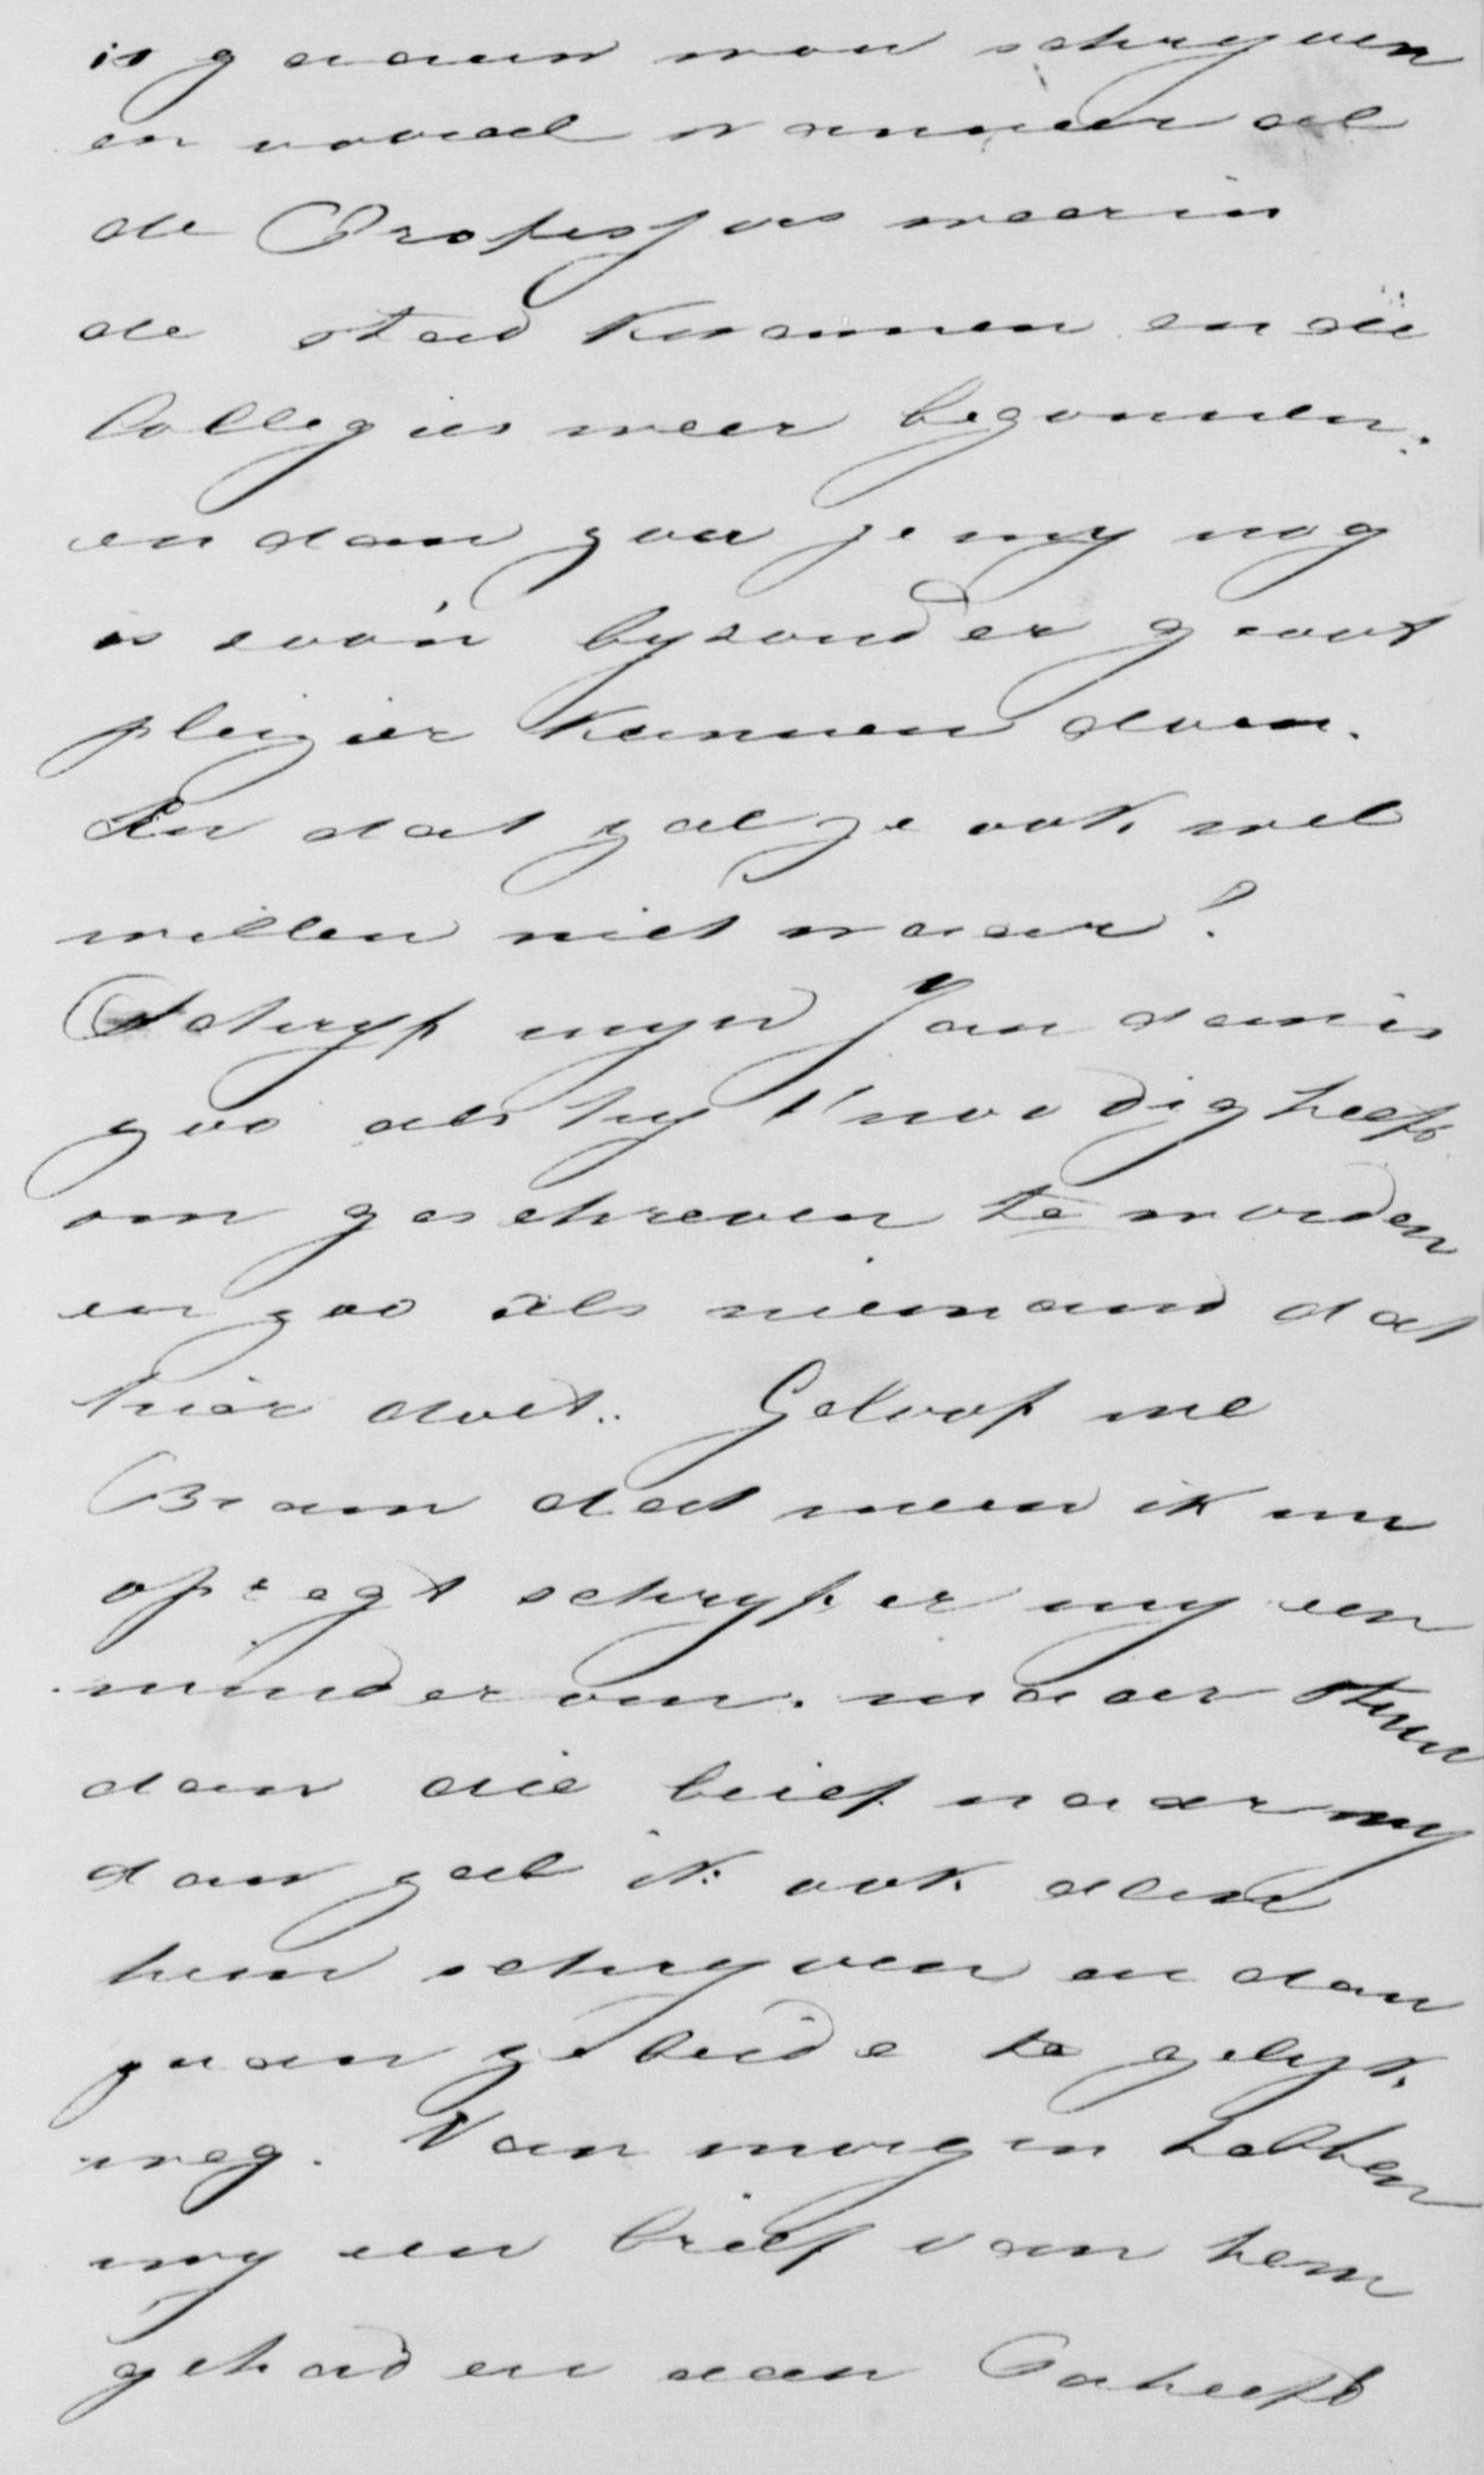 is gaauw wou schryven
en vooral wanneer al
de Professors weer in
de stad kwamen en die
Collegies weer begonnen.
en dan zou je my nog
is zoo'n byzonder groot
pleizier kunnen doen.
En dat zal je ook wel
willen niet waar?
Schryf myn Jan dan is
zoo als hy 't noodig heeft
om geschreven te worden
en zoo als niemand dat
hier doet. Geloof me
Bram dat meen ik nu
opregt schryf er my een
minder om. maar stuur
dan die brief naar my
dan zal ik ook aan
hem schryven en dan
gaan ze beide te gelyk.
weg. Van morgen hebben
wy een brief van hem
gehad en aan Pa heeft